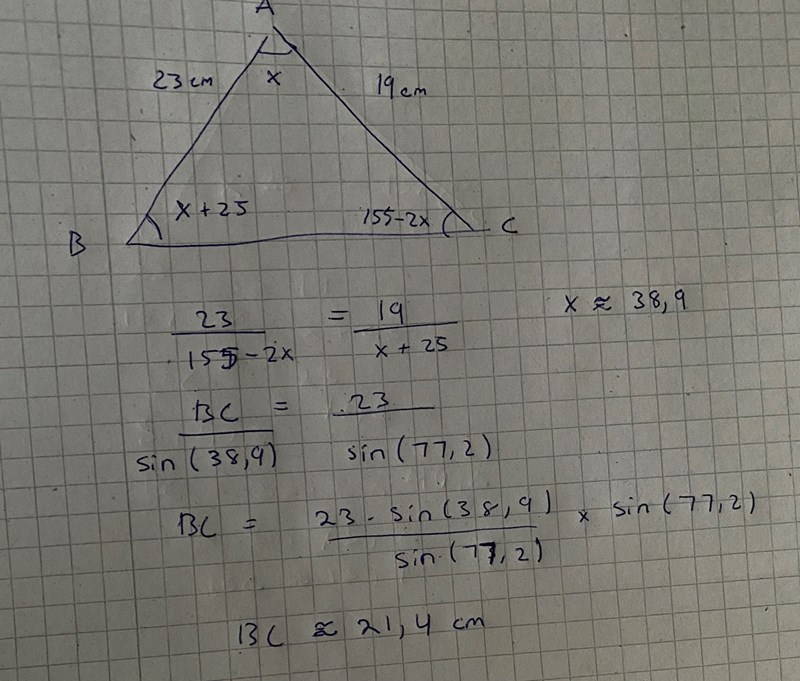 A
23 cm
x
19 cm
x + 25
155-2x
B
C
23 / 155-2x = 19 / x + 25
x ≈ 38,9
BC / sin (38,9) = 23 / sin (77,2)
BC = 23 · sin (38,9) / sin (77,2) x sin (77,2)
BC ≈ 21,4 cm